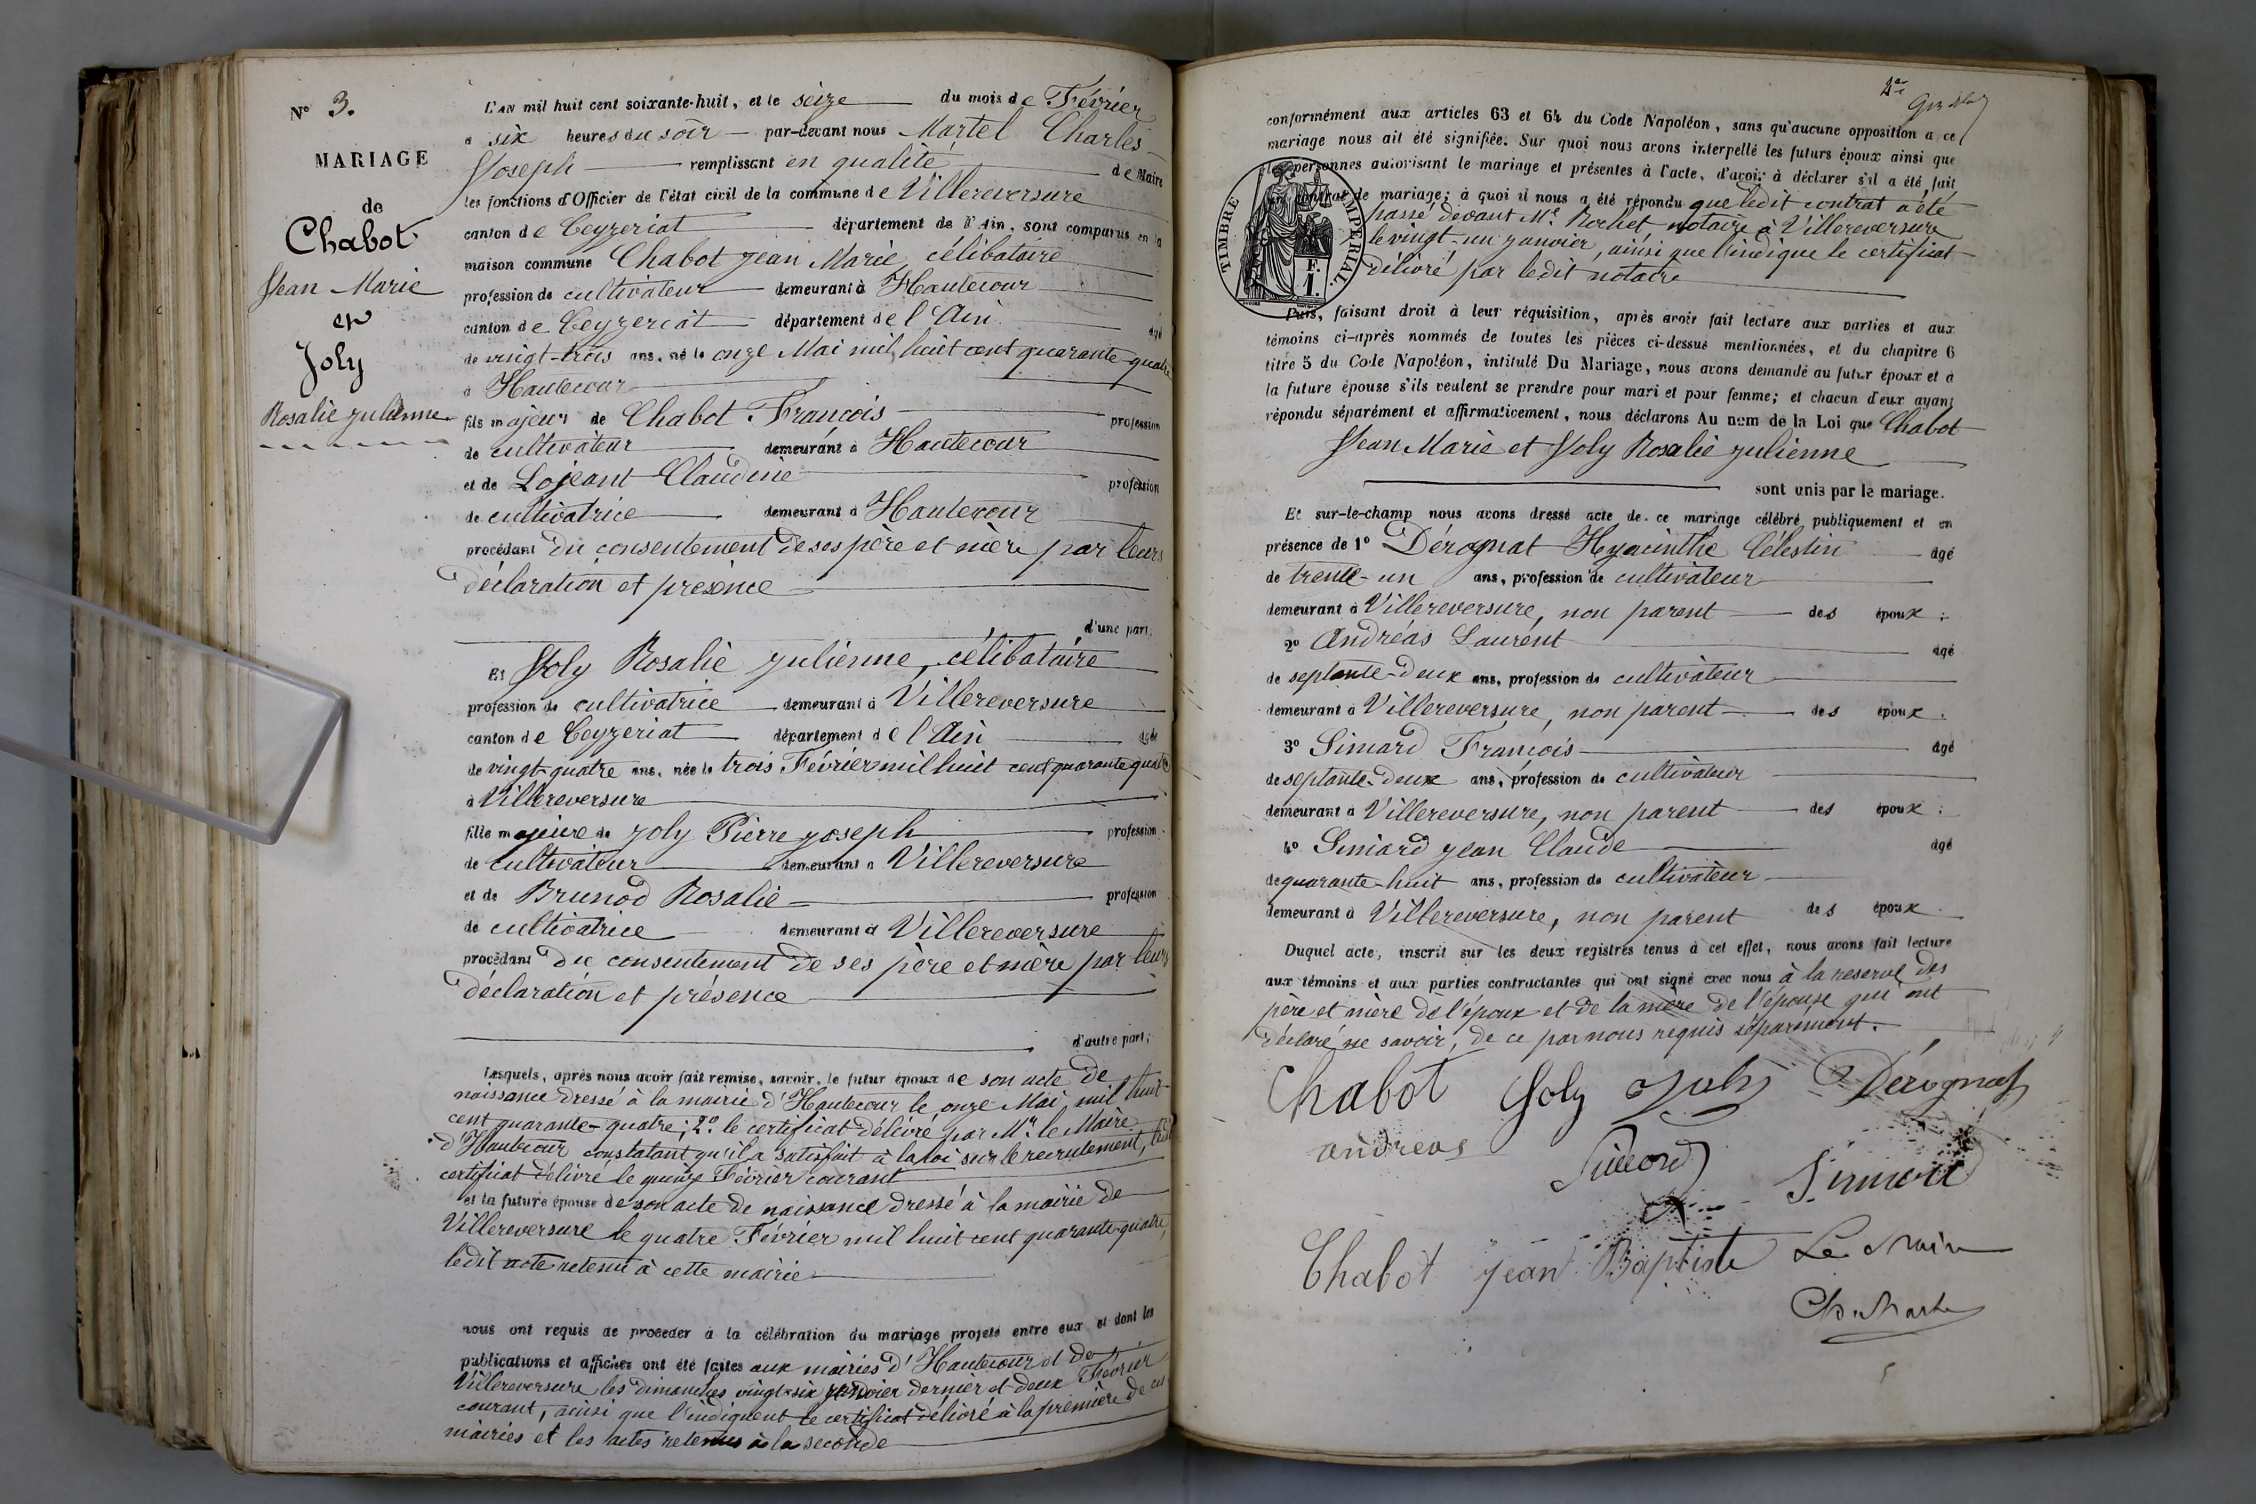 N° 3.
MARIAGE
de
Chabot
Jean Marie
et
Joly
Rosalie Julienne
L'AN mil huit cent soixante-huit, et le seize du mois de Février
à six heures du soir par-devant nous Martel Charles
Joseph remplissant en qualité de Maire
les fonctions d'Officier de l'état civil de la commune de Villereversure
canton de Ceyzeriat département de l'Ain, sont comparus en la
maison commune Chabot Jean Marie, célibataire
profession de cultivateur demeurant à Hautecour
canton de Ceyzeriat département de l'Ain âgé
de vingt-trois ans, né le onze Mai mil huit cent quarante-quatre
à Hautecour
fils majeur de Chabot François profession
de cultivateur demeurant à Hautecour
et de Lojeant Claudine profession
de cultivatrice demeurant à Hautecour
procédant du consentement de ses père et mère par leurs
déclaration et présence
d'une part,
Et Joly Rosalie Julienne, célibataire
profession de cultivatrice demeurant à Villereversure
canton de Ceyzeriat département de l'Ain âgée
de vingt-quatre ans, née le trois Février mil huit cent quarante quatre
à Villereversure
fille majeure de Joly Pierre Joseph profession
de cultivateur demeurant à Villereversure
et de Brunod Rosalie profession
de cultivatrice demeurant à Villereversure
procédant du consentement de ses père et mère par leurs
déclaration et présence
d'autre part;
Lesquels, après nous avoir fait remise, savoir, le futur époux de son acte de
naissance dressé à la mairie d'Hautecour le onze Mai mil huit
cent quarante-quatre; 2° le certificat délivré par Mr. le Maire
d'Hautecour constatant qu'il a satisfait à la loi sur le recrutement,
certificat délivré le quinze Février courant
et la future épouse de son acte de naissance dressé à la mairie de
Villereversure le quatre Février mil huit cent quarante-quatre,
ledit acte retenu à cette mairie
nous ont requis de procéder à la célébration du mariage projeté entre eux et dont les
publications et affiches ont été faites aux mairies d'Hautecour et de
Villereversure les dimanches vingt-six janvier dernier et deux Février
courant, ainsi que l'indiquent le certificat délivré à la première de ces
mairies et les actes retenus à la seconde
conformément aux articles 63 et 64 du Code Napoléon, sans qu'aucune opposition à ce
mariage nous ait été signifiée. Sur quoi nous avons interpellé les futurs époux ainsi que
les personnes autorisant le mariage et présentes à l'acte, d'avoir à déclarer s'il a été fait
un contrat de mariage; à quoi il nous a été répondu que ledit contrat a été
passé devant Me Rochet notaire à Villereversure
le vingt-un janvier, ainsi que l'indique le certificat
délivré par ledit notaire
TIMBRE IMPERIAL.
F.
1.
Puis, faisant droit à leur réquisition, après avoir fait lecture aux parties et aux
témoins ci-après nommés de toutes les pièces ci-dessus mentionnées, et du chapitre 6
titre 5 du Code Napoléon, intitulé Du Mariage, nous avons demandé au futur époux et à
la future épouse s'ils veulent se prendre pour mari et pour femme; et chacun d'eux ayant
répondu séparément et affirmativement, nous déclarons Au nom de la Loi que Chabot
Jean Marie et Joly Rosalie Julienne
sont unis par le mariage.
Et sur-le-champ nous avons dressé acte de ce mariage célébré publiquement et en
présence de 1° Dérognat Hyacinthe Célestin âgé
de trente-un ans, profession de cultivateur
demeurant à Villereversure, non parent des époux;
2° Andréas Laurent âgé
de septante-deux ans, profession de cultivateur
demeurant à Villereversure, non parent des époux;
3° Simard François âgé
de septante-deux ans, profession de cultivateur
demeurant à Villereversure, non parent des époux;
4° Simard Jean Claude âgé
de quarante-huit ans, profession de cultivateur
demeurant à Villereversure, non parent des époux.
Duquel acte, inscrit sur les deux registres tenus à cet effet, nous avons fait lecture
aux témoins et aux parties contractantes qui ont signé avec nous à la reserve des
père et mère de l'époux et de la mère de l'épouse qui ont
déclaré ne savoir, de ce par nous requis séparément.
Chabot Joly Joly Dérognat
andreas Simard Simard
Chabot Jean Baptiste Le Maire
Ch. Martel